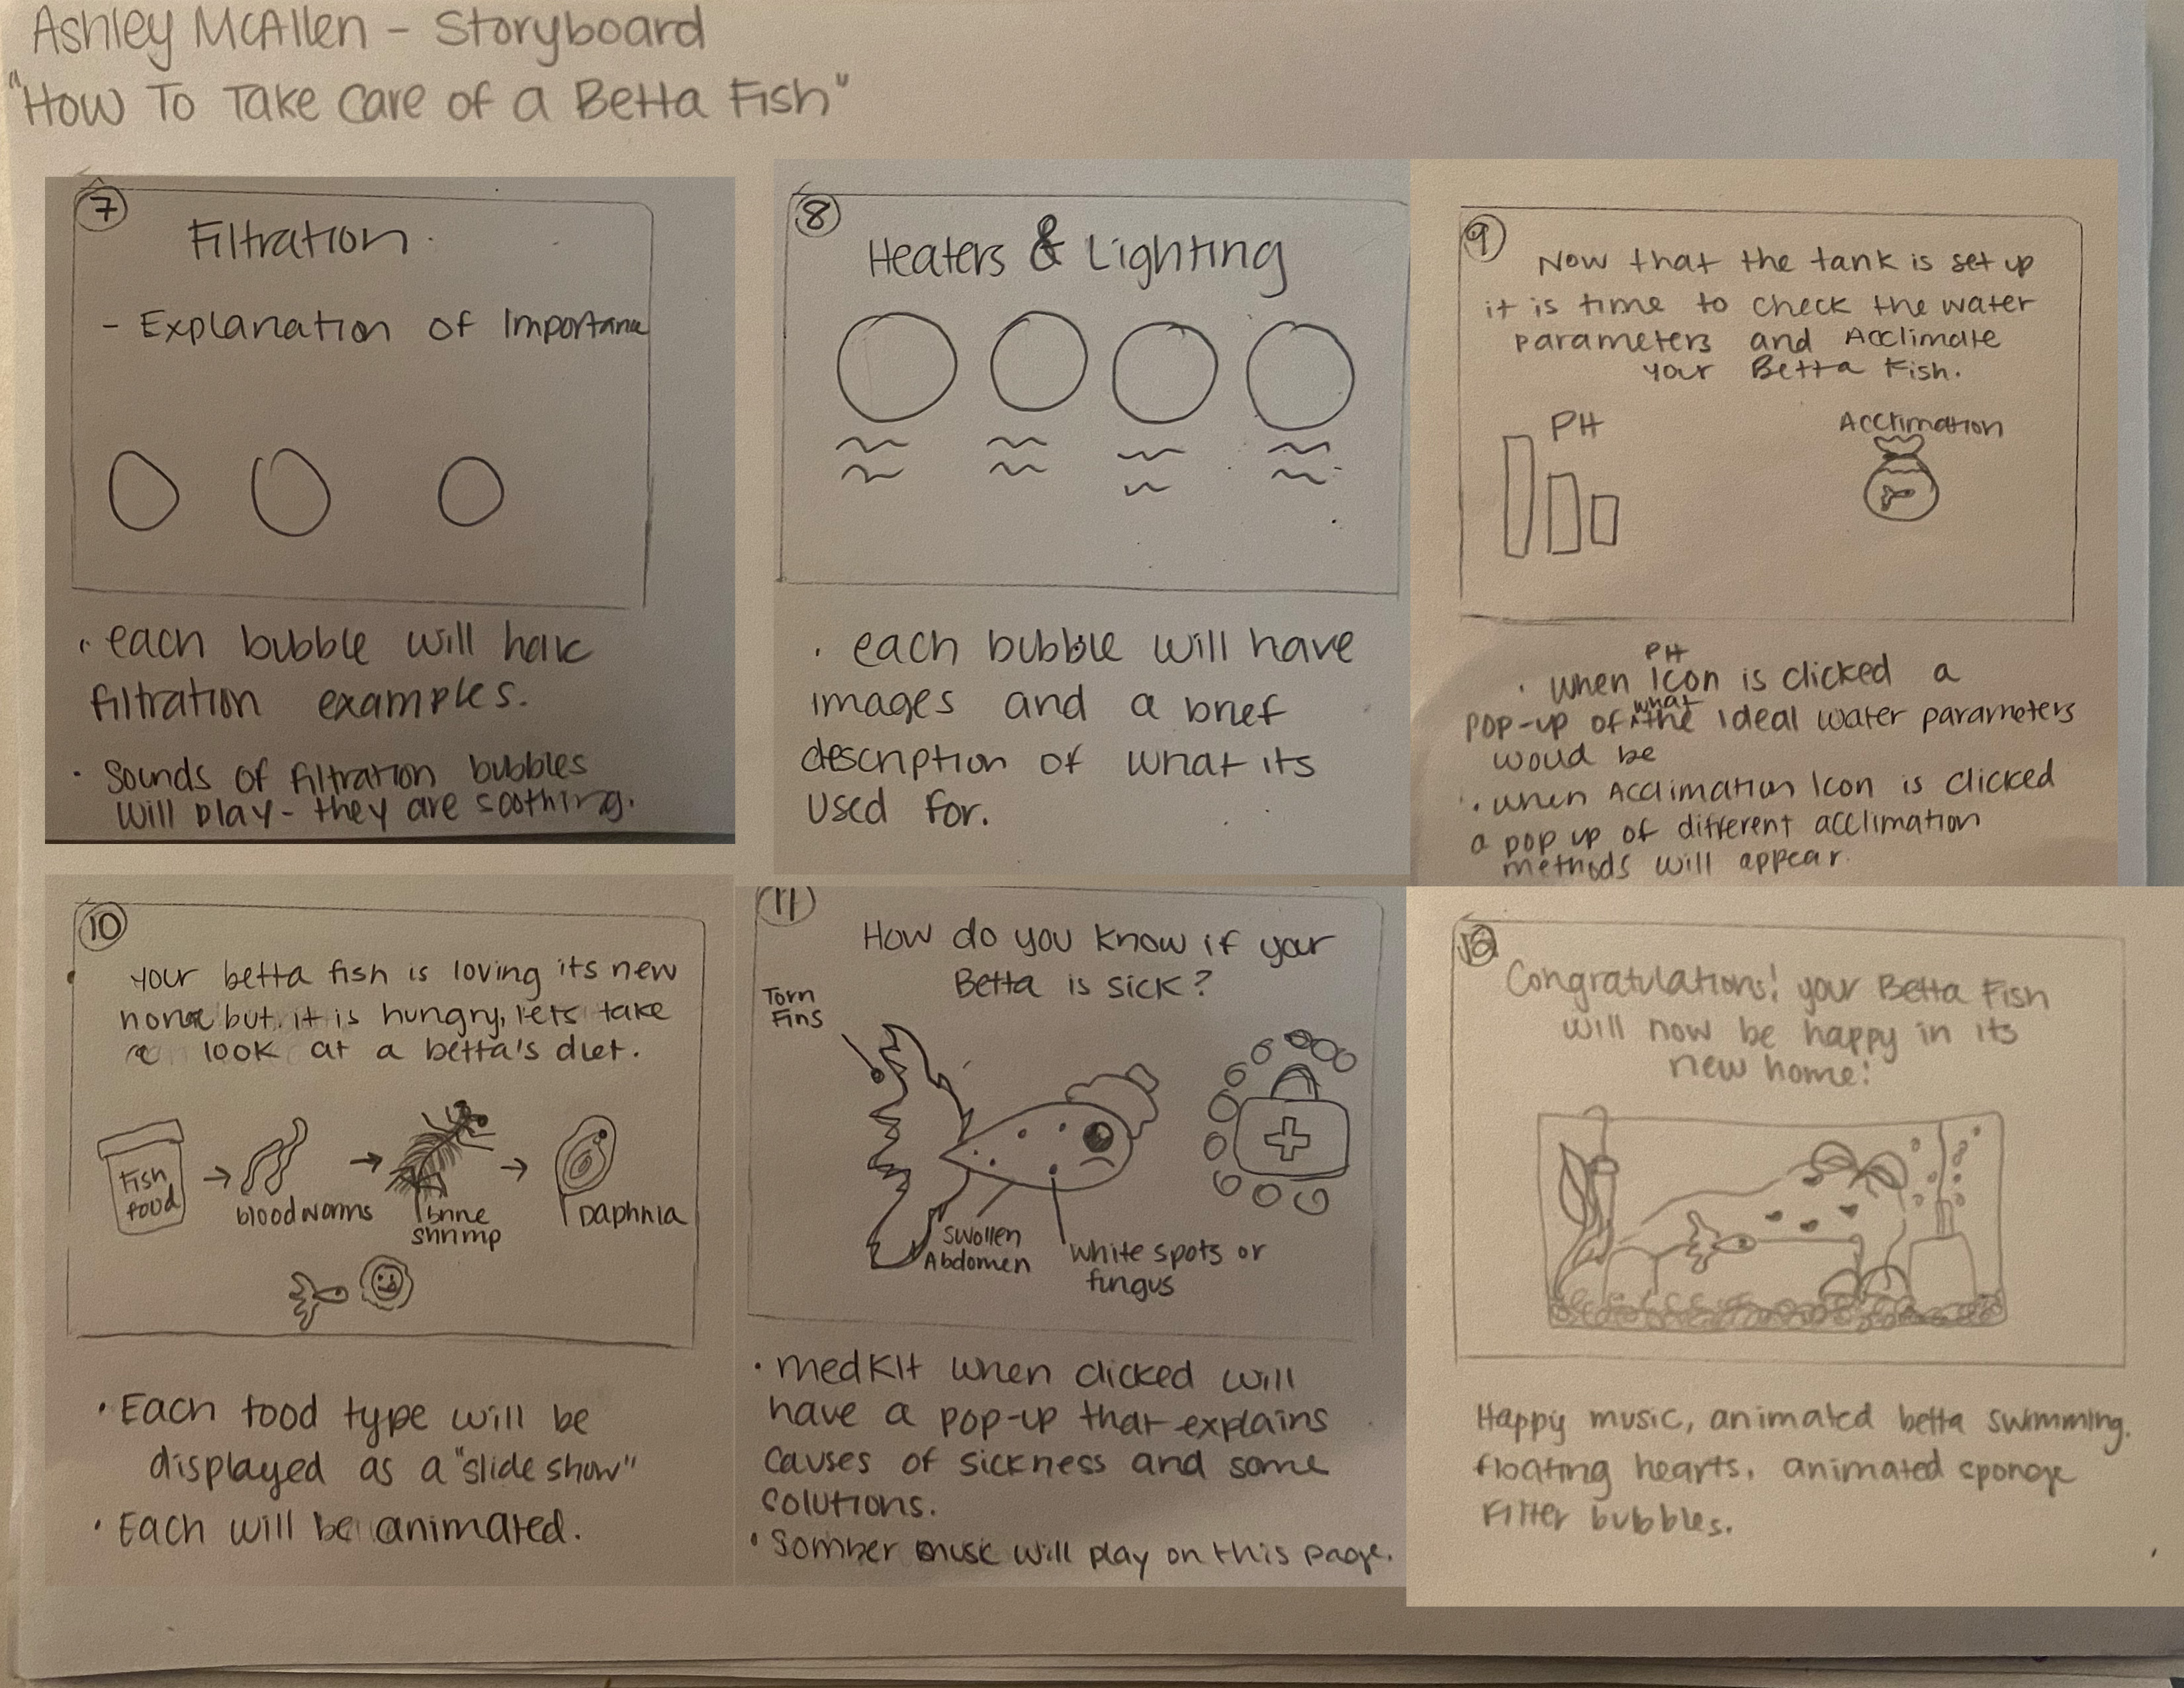 Ashley McAllen - Storyboard
"How To Take Care of a Betta Fish"
7
Filtration
- Explanation of Importance
· each bubble will have
filtration examples.
· Sounds of filtration bubbles
will play - they are soothing.
8
Heaters & Lighting
· each bubble will have
images and a brief
description of what its
used for.
9
Now that the tank is set up
it is time to check the water
parameters and Acclimate
your Betta Fish.
PH
Acclimation
· when PH Icon is clicked a
pop-up of what the ideal water parameters
woud be
· when Acclimation Icon is clicked
a pop up of different acclimation
methods will appear.
10
your betta fish is loving its new
but it is hungry, lets take
a look at a betta's diet.
Fish
food
bloodworms
brine
shrimp
Daphnia
· Each food type will be
displayed as a "slide show"
· Each will be animated.
11
How do you know if your
Betta is sick?
Torn
Fins
Swollen
Abdomen
white spots or
fungus
· medkit when clicked will
have a pop-up that explains
causes of sickness and some
solutions.
· Somber music will play on this page.
Congratulations! your Betta Fish
will now be happy in its
new home!
Happy music, animated betta swimming.
floating hearts, animated sponge
Filter bubbles.